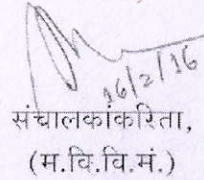 16/2/16
संचालकांकरिता,
(म.वि.वि.मं.)